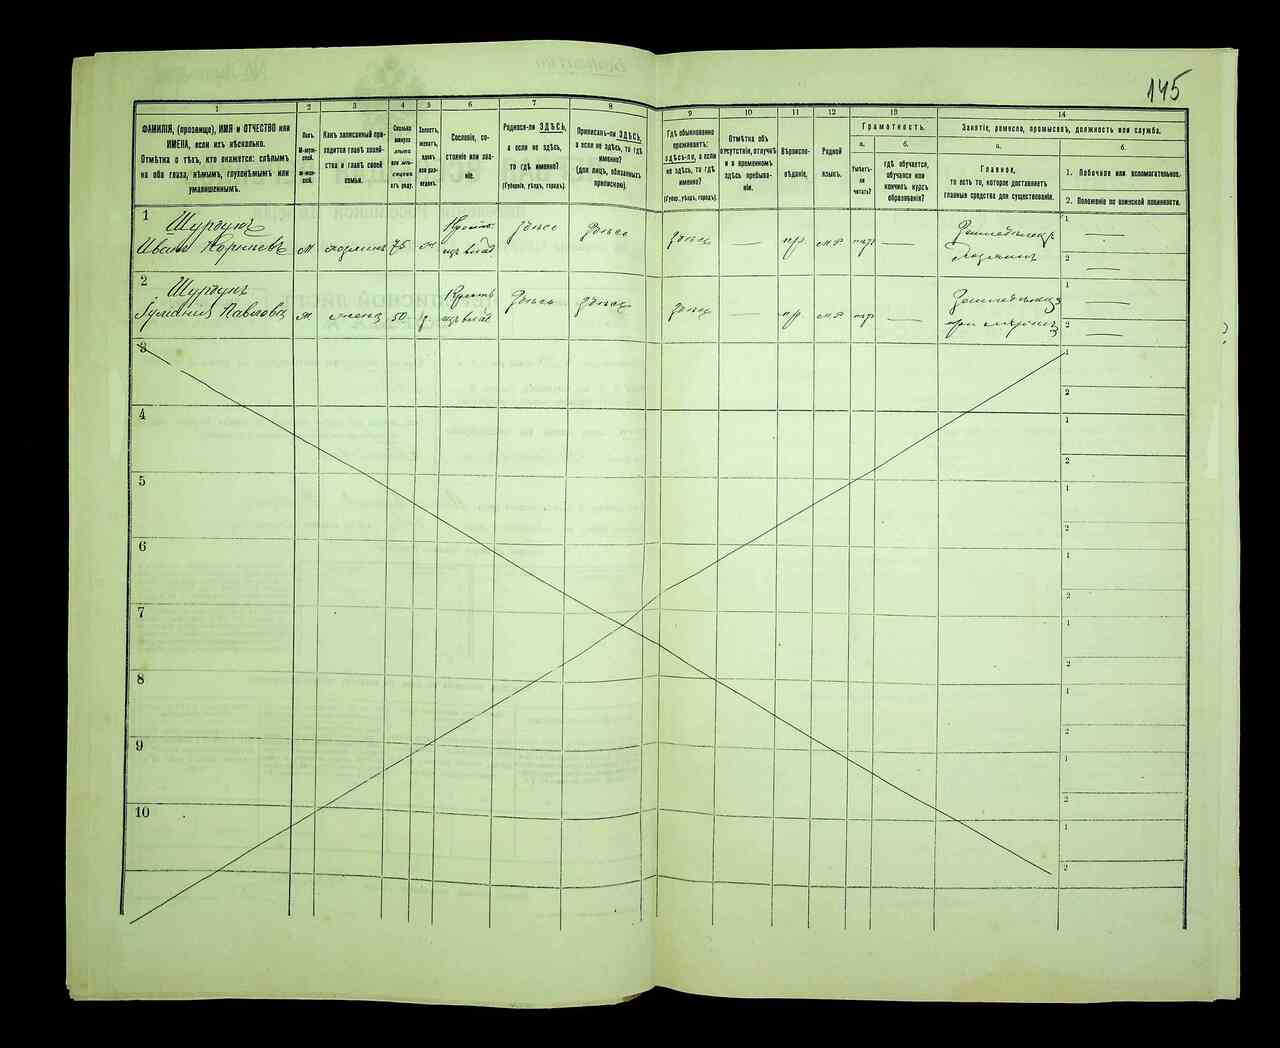 145
1
2
3
4
5
6
7
8
9
10
11
12
13
14
ФАМИЛІЯ, (прозвище), ИМЯ и ОТЧЕСТВО или
ИМЕНА, если ихъ нѣсколько.
Отмѣтка о тѣхъ, кто окажется: слѣпымъ
на оба глаза, нѣмымъ, глухонѣмымъ или
умалишеннымъ.
Полъ.
М-муж-
ской.
ж-жен-
ской.
Какъ записанный при-
ходится главѣ хозяй-
ства и главѣ своей
семьи.
Сколько
минуло
лѣтъ
или мѣ-
сяцевъ
отъ роду.
Холостъ,
женатъ,
вдовъ
или раз-
веденъ.
Сословіе, со-
стояніе или зва-
ніе.
Родился-ли ЗДѢСЬ,
а если не здѣсь,
то гдѣ именно?
(Губернія, уѣздъ, городъ).
Приписанъ-ли ЗДѢСЬ,
а если не здѣсь, то гдѣ
именно?
(для лицъ, обязанныхъ
припискою).
Гдѣ обыкновенно
проживаетъ:
здѣсь-ли, а если
не здѣсь, то гдѣ
именно?
(Губер., уѣздъ, городъ).
Отмѣтка объ
отсутствіи, отлучкѣ
и о временномъ
здѣсь пребыва-
ніи.
Вѣроиспо-
вѣданіе.
Родной
языкъ.
Грамотность.
а.
Умѣетъ-
ли
читать?
б.
гдѣ обучается,
обучался или
кончилъ курсъ
образованія?
Занятіе, ремесло, промыселъ, должность или служба.
а.
Главное,
то есть то, которое доставляетъ
главныя средства для существованія.
б.
1. Побочное или вспомогательное.
2. Положеніе по воинской повинности.
1
Шурдукъ
Иванъ
м
хозяинъ
75
здѣсь
здѣсь
здѣсь
—
пр.
м р
1
—
2
—
2
Шурдукъ
Павловна
жена
50
здѣсь
здѣсь
здѣсь
—
пр
м р
—
1
—
2
—
3
1
2
4
1
2
5
1
2
6
1
2
7
1
2
8
1
2
9
1
2
10
1
2